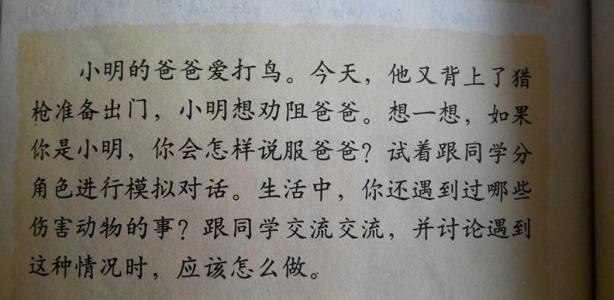 小明的爸爸爱打鸟。今天，他又背上了猎
枪准备出门，小明想劝阻爸爸。想一想，如果
你是小明，你会怎样说服爸爸？试着跟同学分
角色进行模拟对话。生活中，你还遇到过哪些
伤害动物的事？跟同学交流交流，并讨论遇到
这种情况时，应该怎么做。